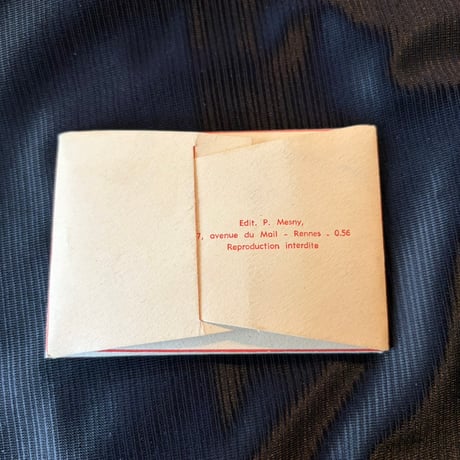 Edit. P. Mesny,
7, avenue du Mail - Rennes - 0.56
Reproduction interdite